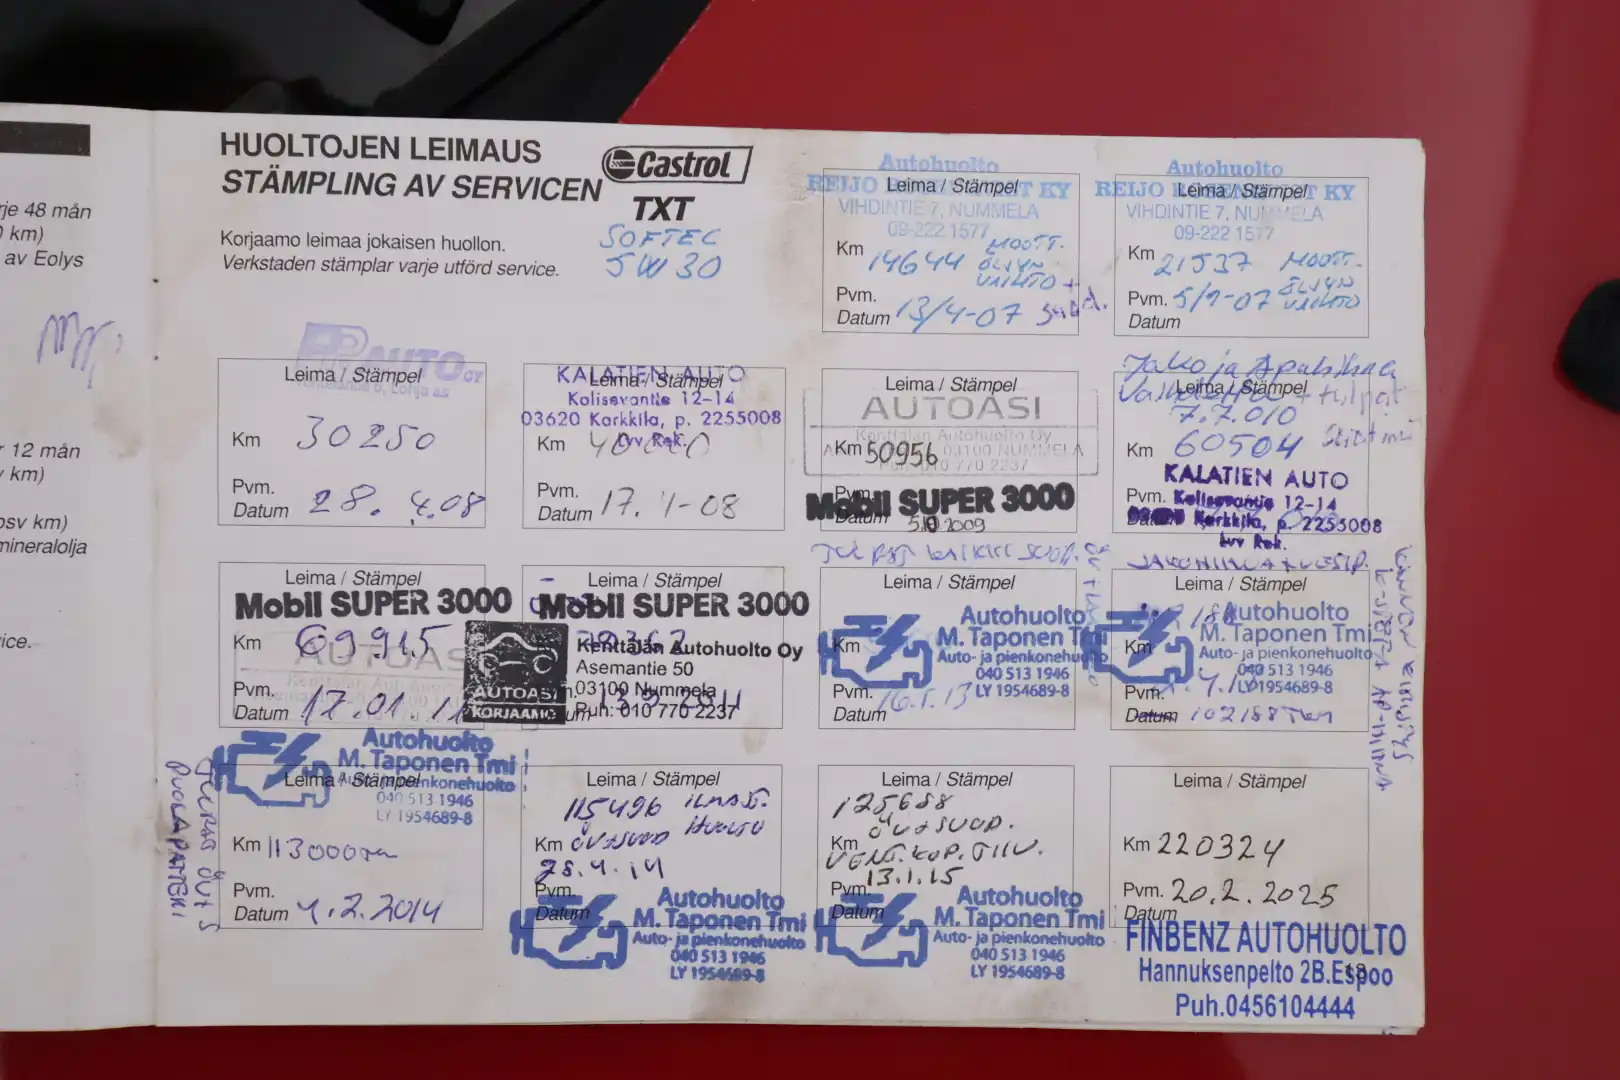 rje 48 mån
km)
av Eolys
12 mån
km)
osv km)
mineralolja
ice.
HUOLTOJEN LEIMAUS
STÄMPLING AV SERVICEN
Castrol
TXT
SOFTEC
5W30
Korjaamo leimaa jokaisen huollon.
Verkstaden stämplar varje utförd service.
Autohuolto
REIJO
KY
Leima / Stämpel
VIHDINTIE 7, NUMMELA
09-222 1577
Km 14644 MOOTT.
ÖLJYN
VAIHTO +
Pvm.
Datum 13/4-07
Autohuolto
REIJO
KY
Leima / Stämpel
VIHDINTIE 7, NUMMELA
09-222 1577
Km 21537 MOOTT.
ÖLJYN
VAIHTO
Pvm. 5/9-07
Datum
AUTO OY
Leima / Stämpel
Km 30250
Pvm.
Datum 28.4.08
KALATIEN AUTO
Leima / Stämpel
Kolisevantie 12-14
03620 Karkkila, p. 2255008
Lvv Rek.
Km
Pvm.
Datum 17.
Leima / Stämpel
AUTOASI
Kenttälän Autohuolto Oy
03100 NUMMELA
Puh. 010 770 2237
Km 50956
Pvm.
Mobil SUPER 3000
Datum 5.10.2009
Jako ja Apulaihna
Leima / Stämpel
Vaihdettu + tulpat
7.7.010
Km 60504
KALATIEN AUTO
Pvm. Kolisevantie 12-14
Datum Karkkila, p. 2255008
Lvv Rek.
Leima / Stämpel
Mobil SUPER 3000
Km 69915
AUTOASI
Pvm.
Datum 17.01.11
Leima / Stämpel
Mobil SUPER 3000
Kenttälän Autohuolto Oy
Asemantie 50
03100 Nummela
Puh: 010 770 2237
AUTOASI
KORJAAMO
Leima / Stämpel
Autohuolto
M. Taponen Tmi
Auto- ja pienkonehuolto
040 513 1946
LY 1954689-8
Km
Pvm. 16.1.13
Datum
JAKOHIHNA + VESIP.
Leima / Stämpel
Autohuolto
M. Taponen Tmi
Auto- ja pienkonehuolto
040 513 1946
LY 1954689-8
Km
Pvm.
Datum 102188 Tkm
Autohuolto
M. Taponen Tmi
Leima / Stämpel
Auto- ja pienkonehuolto
040 513 1946
LY 1954689-8
Km 113000
Pvm.
Datum 4.2.2014
Leima / Stämpel
115496 ILMAST.
HUOLTO
Km ÖLJYSUOD
25.4.14
Pvm.
Datum
Autohuolto
M. Taponen Tmi
Auto- ja pienkonehuolto
040 513 1946
LY 1954689-8
Leima / Stämpel
125688
ÖLJYSUOD.
Km
VENT.KOP.TIIV.
13.1.15
Pvm.
Datum
Autohuolto
M. Taponen Tmi
Auto- ja pienkonehuolto
040 513 1946
LY 1954689-8
Leima / Stämpel
Km 220324
Pvm. 20.2.2025
Datum
FINBENZ AUTOHUOLTO
Hannuksenpelto 2B.Espoo
Puh.0456104444